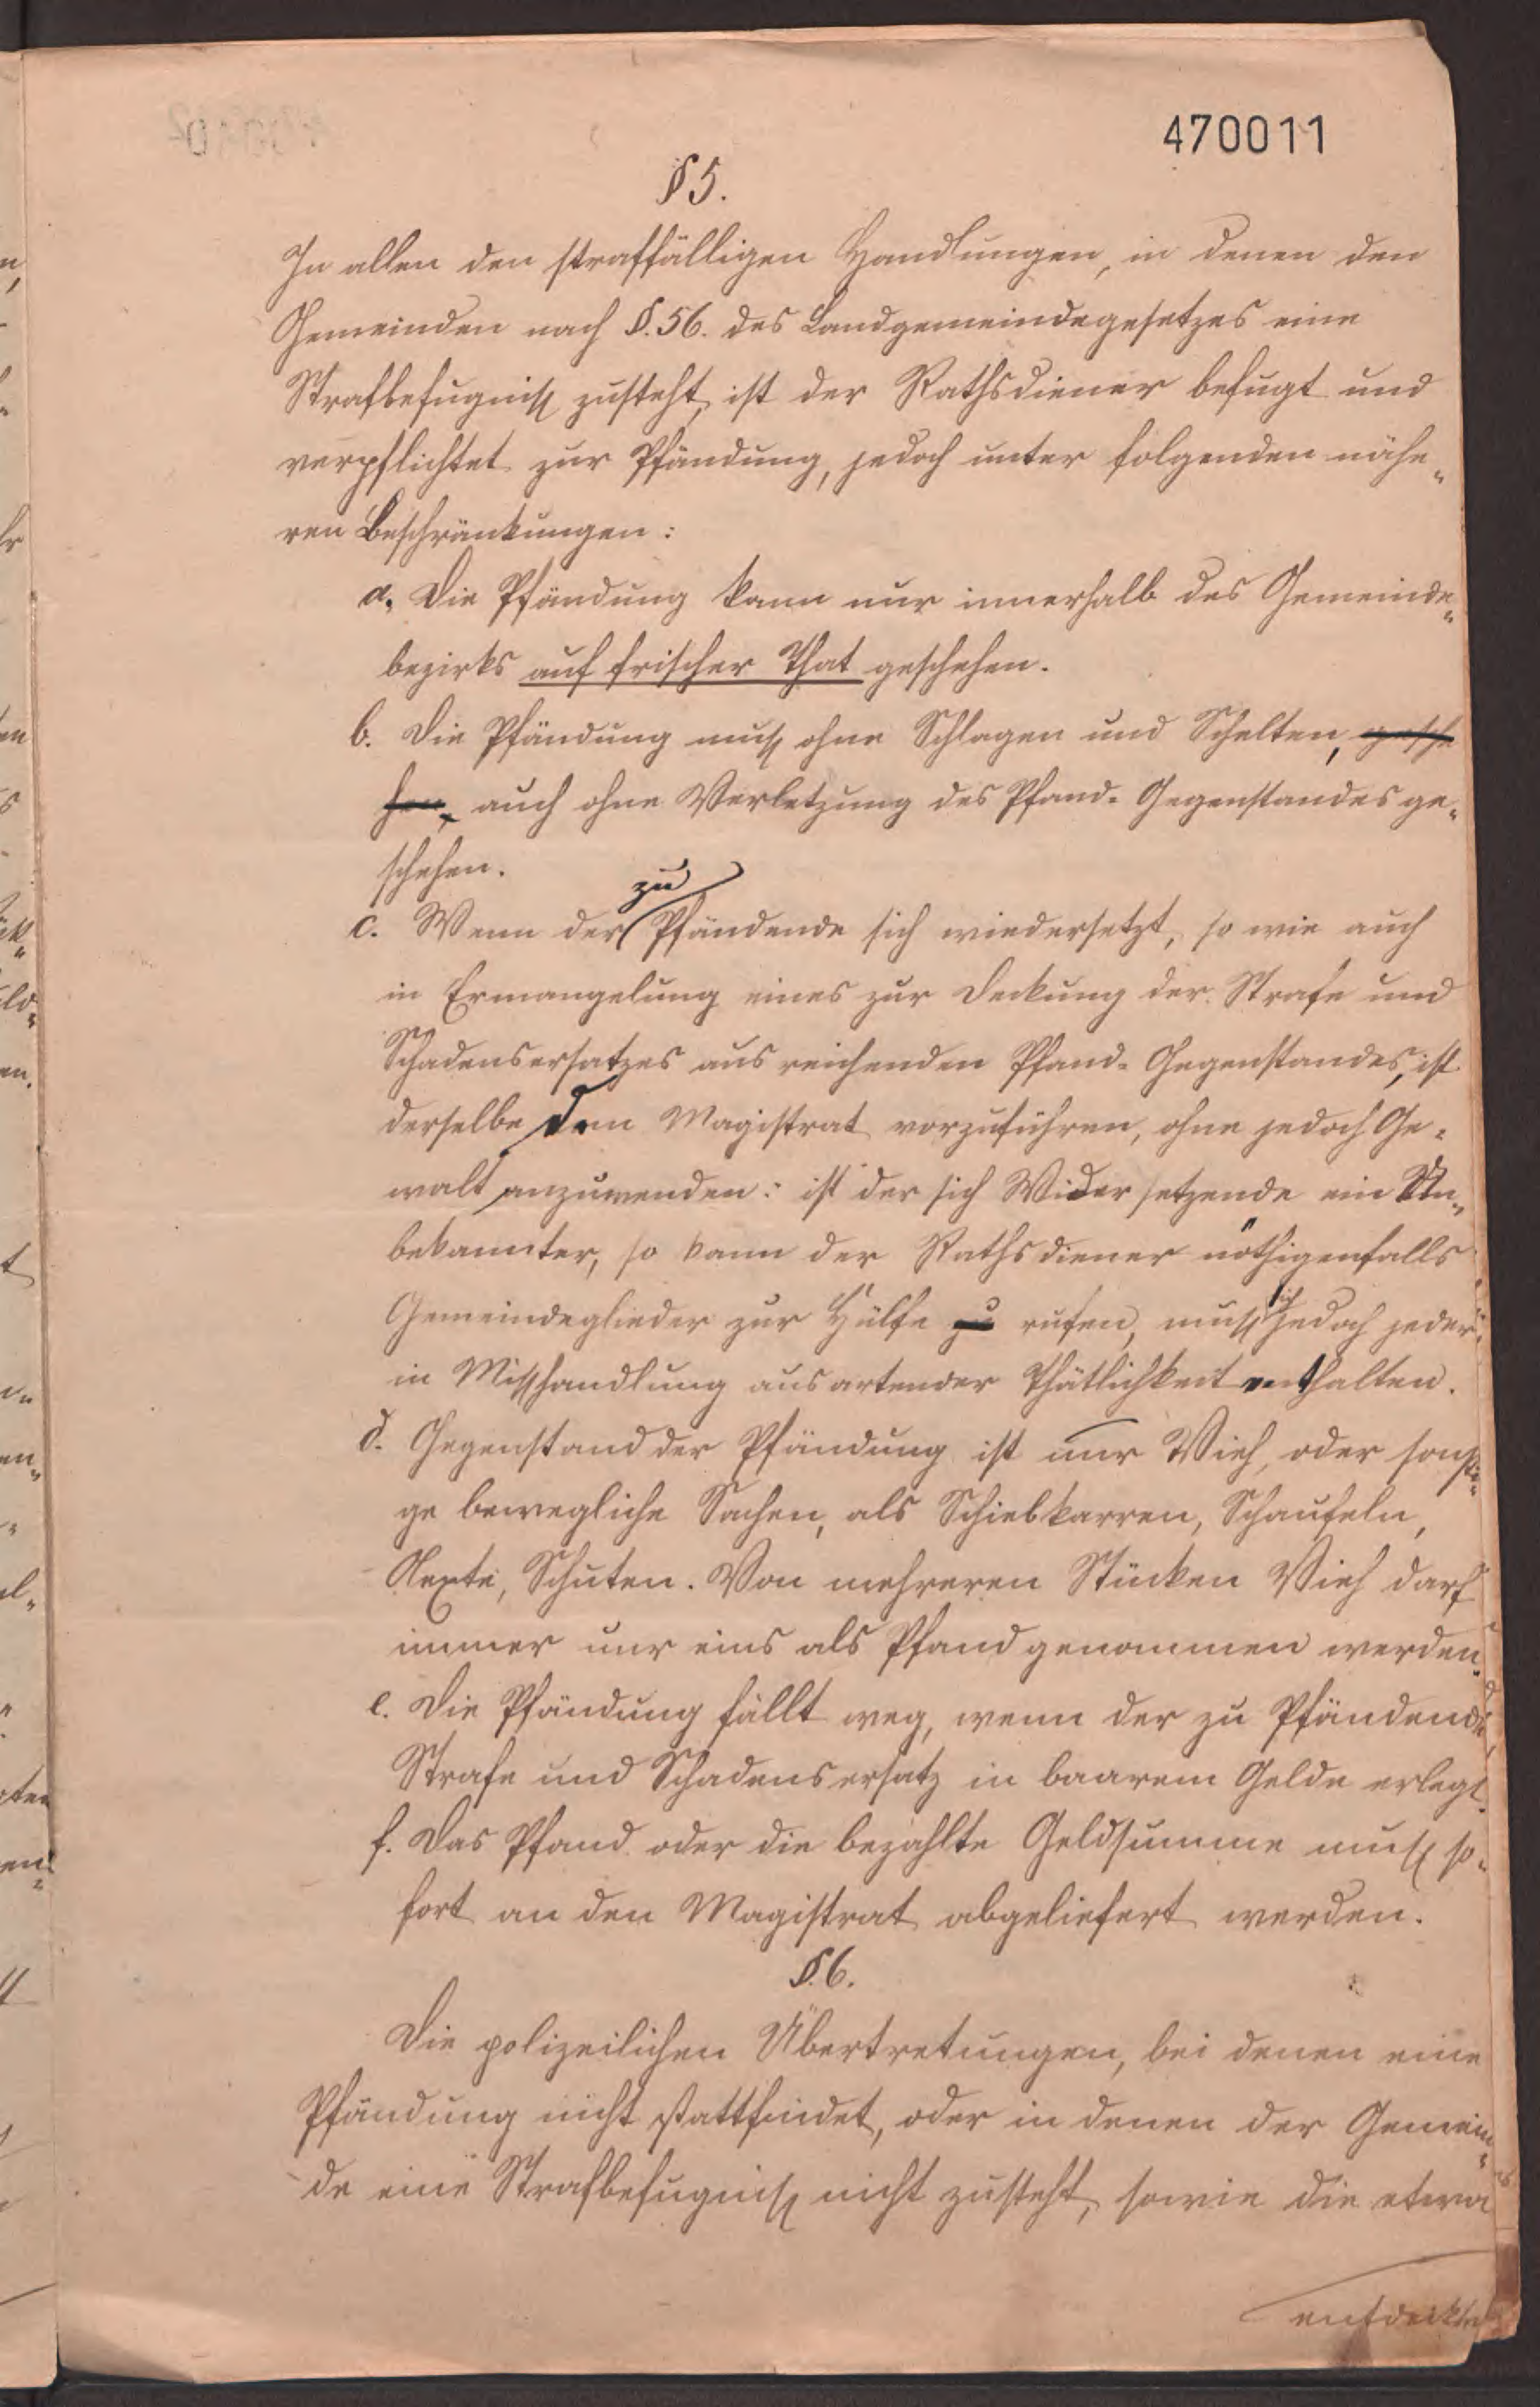 470011
§ 5.
In allen den straffälligen Handlungen, in denen den
Gemeinden nach §. 56. des Landgemeindegesetzes eine
Strafbefugniß zusteht, ist der Rathsdiener befugt und
verpflichtet zur Pfändung, jedoch unter folgenden nähe„
ren Beschränkungen:
a. Die Pfändung kann nur innerhalb des Gemeinde„
bezirks auf frischer That geschehen.
b. Die Pfändung muß ohne Schlagen und Schelten, gesche
hen, auch ohne Verletzung des Pfand-Gegenstandes ge„
schehen.
zu
c. Wenn der Pfändende sich wiedersetzt, so wie auch
in Ermangelung eines zur Deckung der Strafe und
Schadensersatzes ausreichenden Pfand-Gegenstandes, ist
derselbe dem Magistrat vorzuführen, ohne jedoch Ge„
walt anzuwenden: ist der sich Widersetzende ein Un„
bekannter, so kann der Rathsdiener nöthigenfalls
Gemeindeglieder zur Hülfe zu rufen, muß sich jedoch jeder
in Misshandlung ausartender Thätlichkeit enthalten.
d. Gegenstand der Pfändung ist nur Vieh, oder sonsti„
ge bewegliche Sachen, als Schiebkarren, Schaufeln,
Aexte, Schuten. Von mehreren Stücken Vieh darf
immer nur eins als Pfand genommen werden.
e. Die Pfändung fällt weg, wenn der zu Pfändende
Strafe und Schadensersatz in baarem Gelde erlegt.
f. Das Pfand oder die bezahlte Geldsumme muß so„
fort an den Magistrat abgeliefert werden.
§. 6.
Die polizeilichen Übertretungen, bei denen eine
Pfändung nicht stattfindet, oder in denen der Gemein„
de eine Strafbefugniß nicht zusteht, sowie die etwa
entdeckten